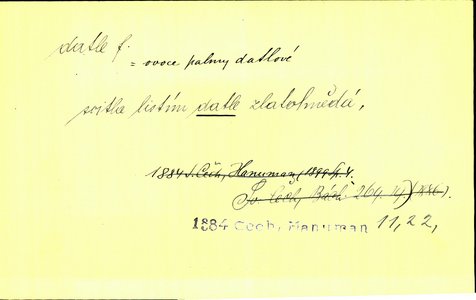 datle f.
= ovoce palmy datlové
svitla listím datle zlatohnědá,
1884 S. Čech, Hanuman (1894) 4.
Sv. Čech, Básně 264, (1886).
1884 Cech, Hanuman 11, 22,